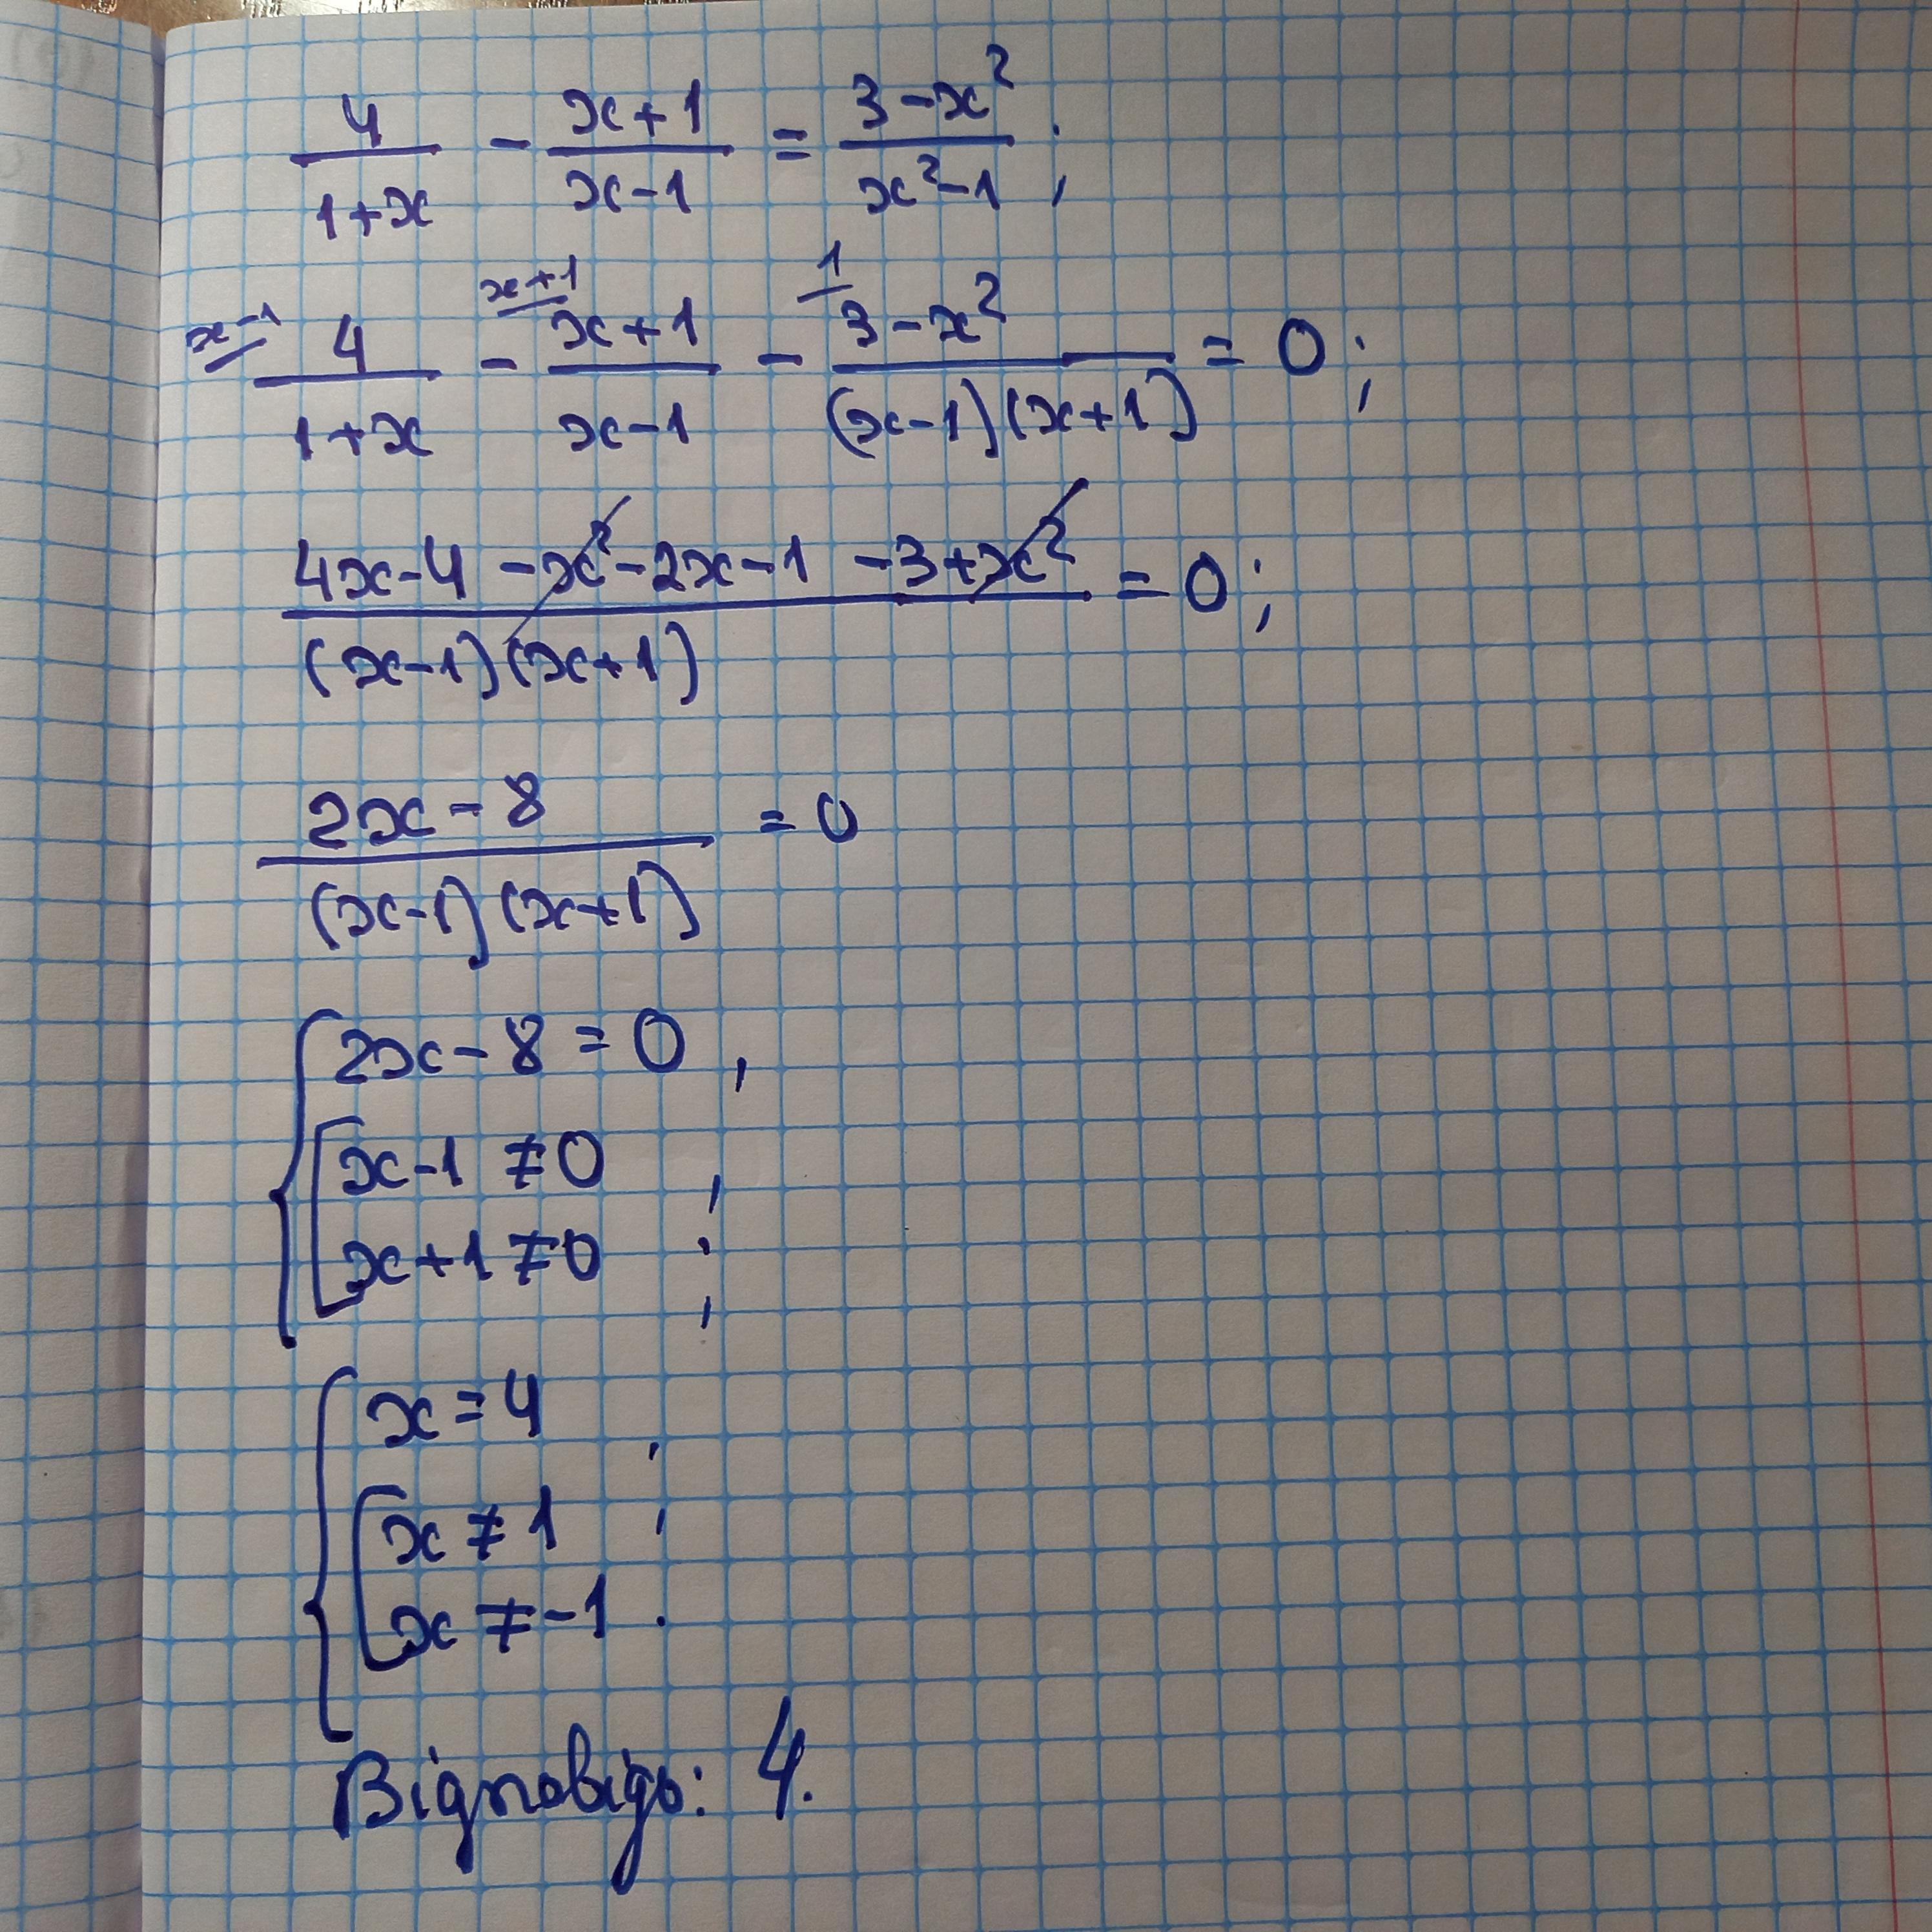 4/(1+x) - (x+1)/(x-1) = (3-x²)/(x²-1);
x-1 x+1 1
4/(1+x) - (x+1)/(x-1) - (3-x²)/((x-1)(x+1)) = 0;
(4x-4-x²-2x-1-3+x²)/((x-1)(x+1)) = 0;
(2x-8)/((x-1)(x+1)) = 0
{2x-8=0,
[x-1≠0,
x+1≠0;
{x=4,
[x≠1,
x≠-1.
Відповідь: 4.